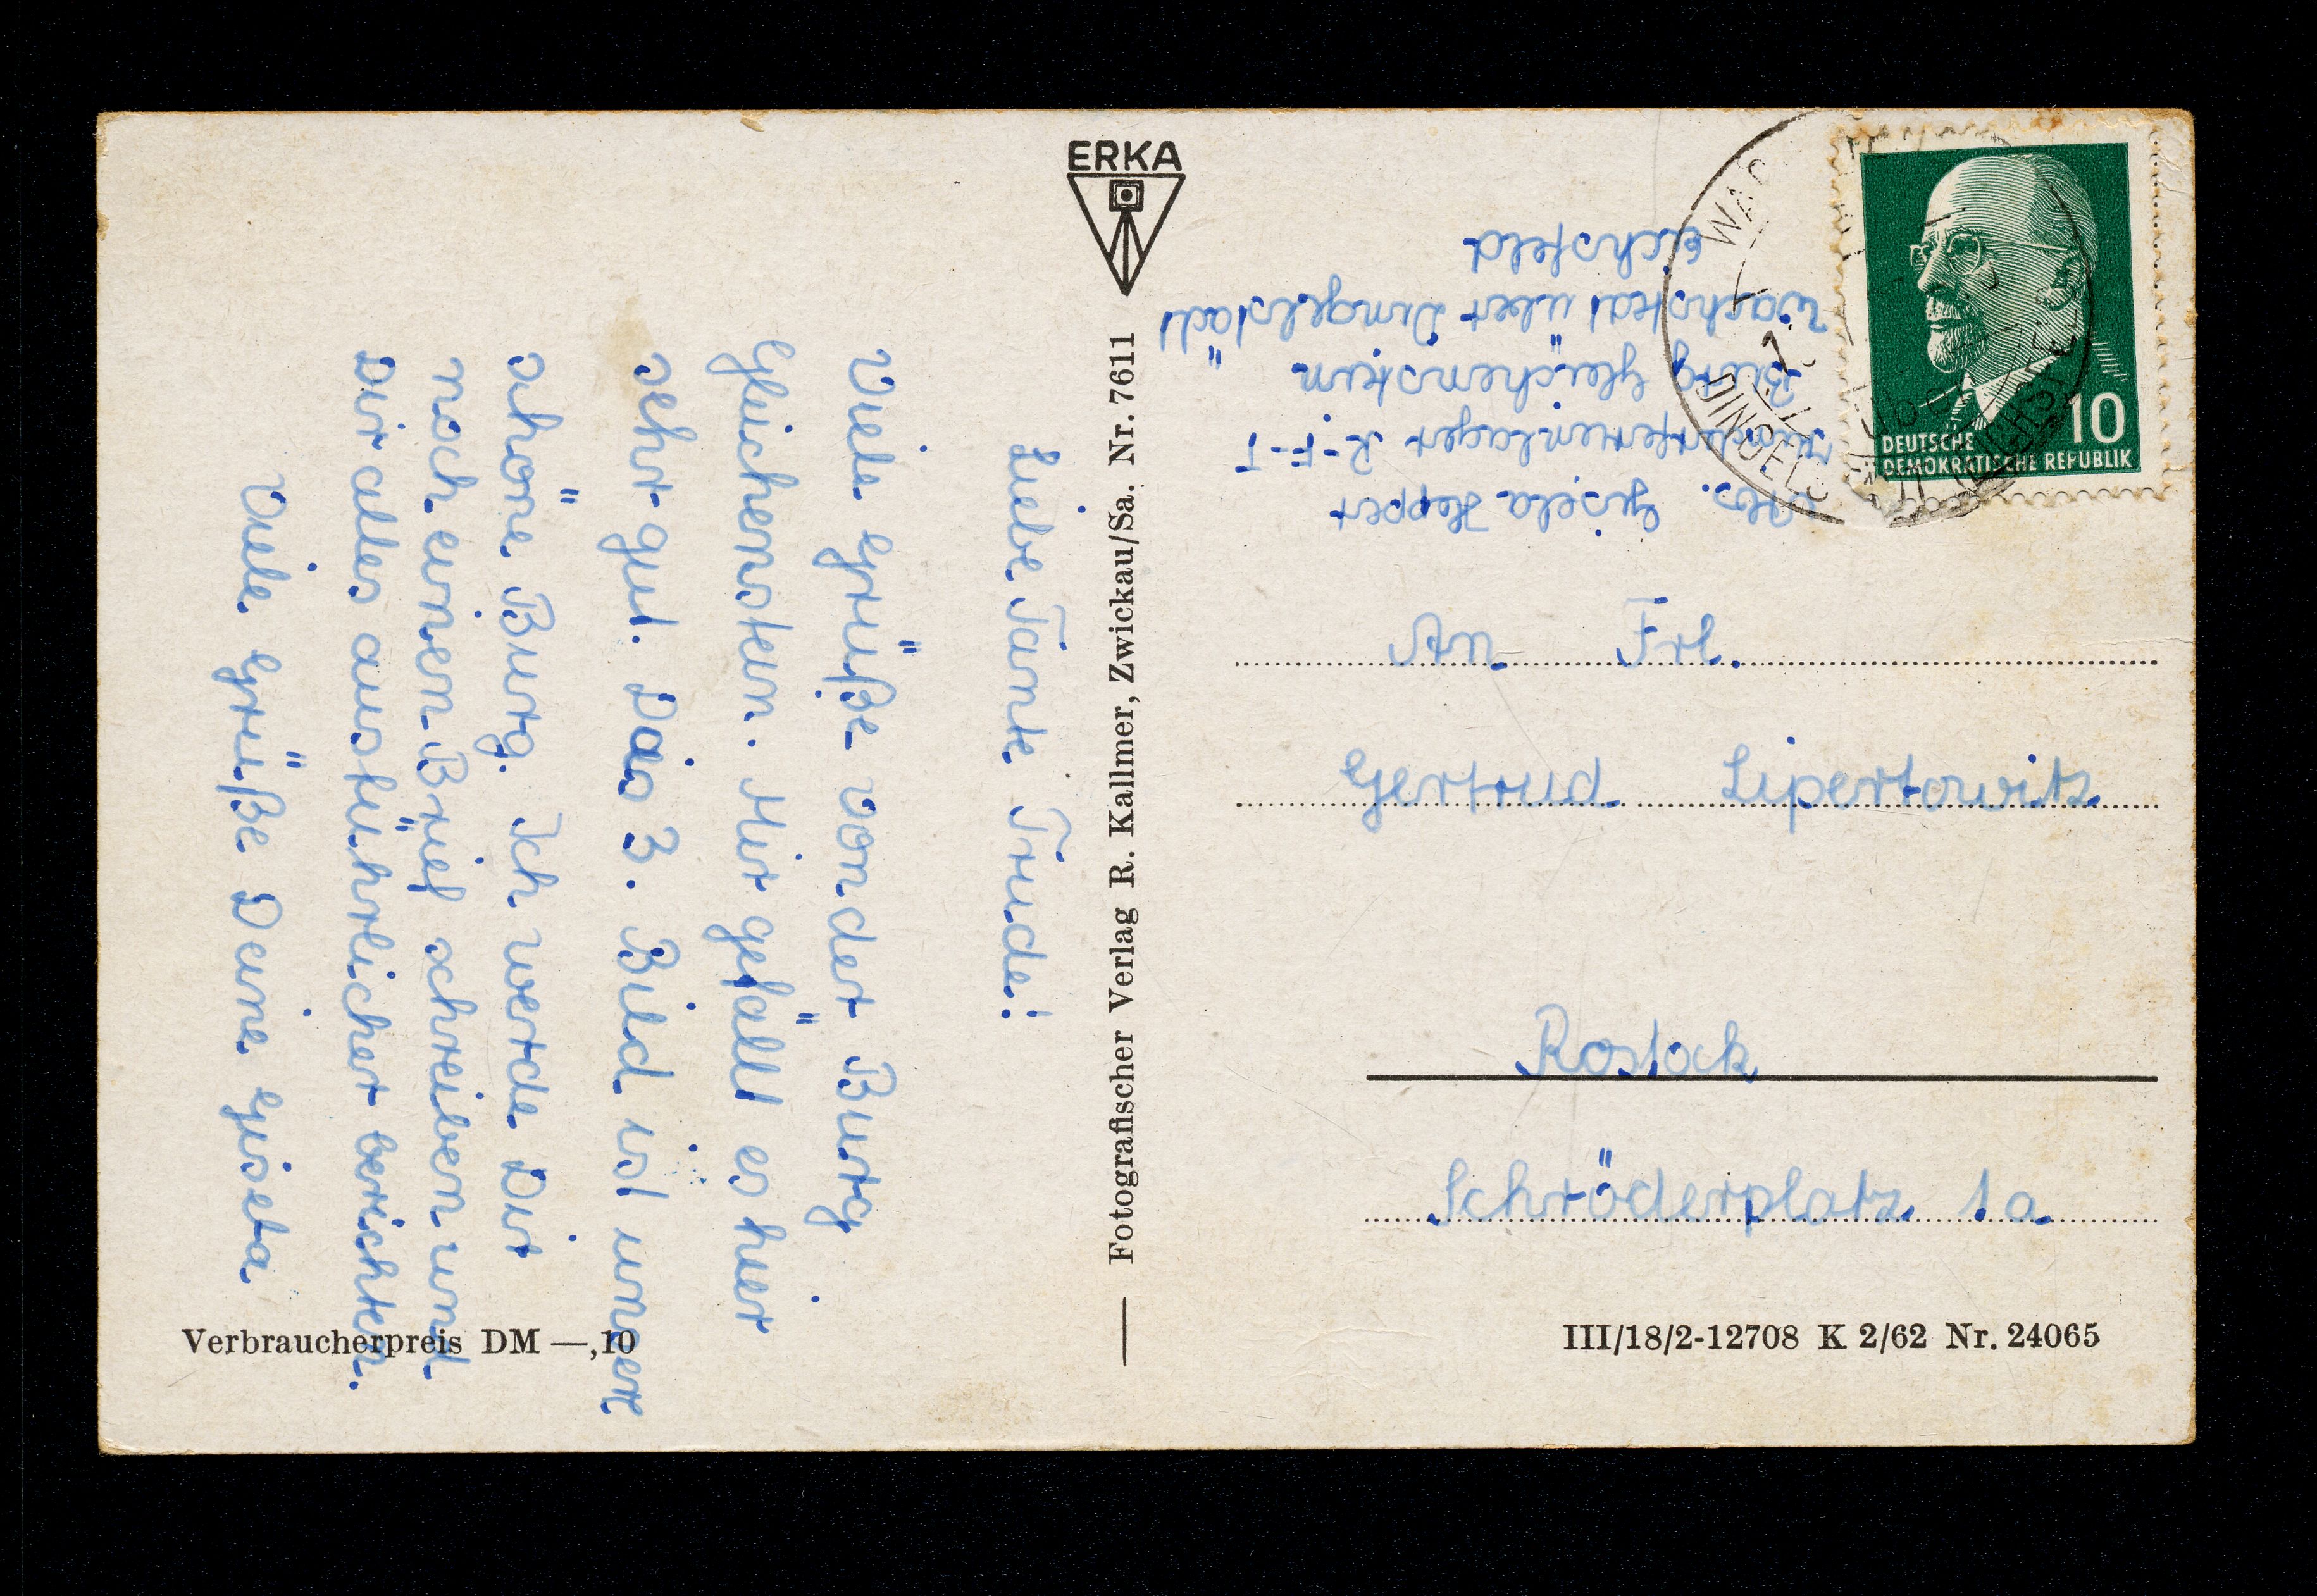 Liebe Tante Trude!
Viele Grüße von der Burg
Gleichenstein. Mir gefällt es hier
sehr gut. Das 3. Bild ist unsere
schöne Burg. Ich werde Dir
noch einen Brief schreiben und
Dir alles ausführlicher berichten.
Viele Grüße Deine Gisela.
Verbraucherpreis DM —,10
ERKA
Fotografischer Verlag R. Kallmer, Zwickau/Sa. Nr. 7611
Abs. Gisela Hopper
Kinderferienlager R-F-T
"Burg Gleichenstein"
Wachstedt über Dingelstädt
Eichsfeld
DINGELST
EICHSFELD
10
DEUTSCHE
DEMOKRATISCHE REPUBLIK
An Frl.
Gertrud Lipertowitz
Rostock
Schröderplatz 1a
III/18/2-12708 K 2/62 Nr. 24065